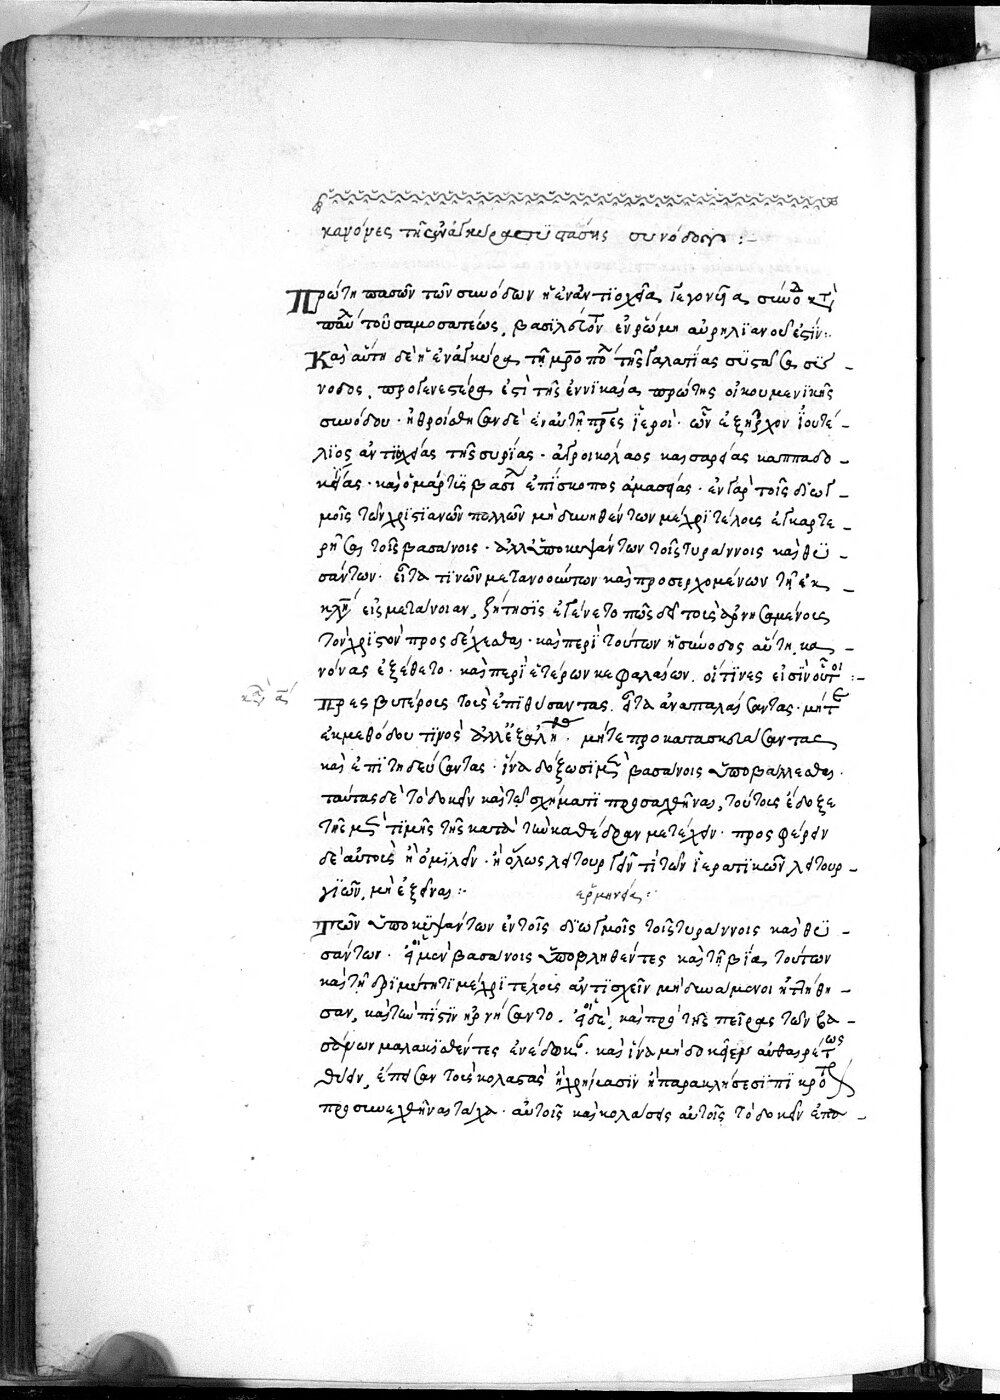 κανόνες τῆς ἐν ἀγκύρα συστάσης συνόδου :-
Πρώτη πασῶν τῶν συνόδων ἡ ἐν ἀντιοχεία γεγονυῖα συνοδ κατὰ
παύλ τοῦ σαμοσατέως, βασιλεύοντ ἐν ῥώμη αὐρηλιανοῦ ἐστίν:
Καὶ αὕτη δὲ ἡ ἐν ἀγκύρα τῆ μροπολ τῆς γαλατίας συστᾶσα σύ -
νοδος, προγενεστέρα ἐστὶ τῆς ἐν νικαία πρώτης οἰκουμενικῆς
συνόδου · ἠθροίσθησαν δὲ ἐν αὐτῆ πρες ἱεροὶ · ὧν ἐξῆρχον βιτά -
λιος ἀντιοχείας τῆς συρίας · ἀγρικόλαος καισαρείας καππαδο -
κίας · καὶ ὁ μάρτυς βασιλ ἐπίσκοπος ἀμασείας · ἐν γὰρ τοῖς διωγ -
μοῖς τῶν χριστιανῶν πολλῶν μὴ δυνηθέντων μέχρι τέλους ἐγκαρτε -
ρῆσαι τοῖς βασάνοις · ἀλλ ὑποκυψάντων τοῖς τυράννοις καὶ θυ -
σάντων · εἶτα τινῶν μετανοούντων καὶ προσερχομένων τῆ ἐκ -
κλη εἰς μετάνοιαν, ζήτησις ἐγένετο πῶς δεῖ τοὺς ἀρνησαμένους
τὸν χριστὸν προσδέχεσθαι · καὶ περὶ τούτων ἡ σύνοδος αὕτη, κα -
νόνας ἐξέθετο · καὶ περὶ ἑτέρων κεφαλαίων. οἵτινες εἰσὶν οὗτοι :-
καν α πρεσβυτέρους τοὺς ἐπιθύσαντας. εἶτα ἀναπαλαίσαντας · μήτε
ἐκ μεθόδου τινὸς ἀλλ ἐξ ἀληθ · μήτε προκατασκευάσαντας
καὶ ἐπιτηδεύσαντας · ἵνα δόξωσι μὲν βασάνοις ὑποβάλλεσθαι ·
ταύτας δὲ τὸ δοκεῖν καὶ τῶ σχήματι προσαχθῆναι, τούτους ἔδοξε
τῆς μὲν τιμῆς τῆς κατὰ τὴν καθέδραν μετέχειν · προσφέρειν
δὲ αὐτοὺς ἢ ὁμιλεῖν · ἢ ὅλως λειτουργεῖν τὶ τῶν ἱερατικῶν λειτουρ -
γιῶν, μὴ ἐξεῖναι :- ἑρμηνεία :
Τῶν ὑποκυψάντων ἐν τοῖς διωγμοῖς τοῖς τυράννοις καὶ θυ -
σάντων · οἱ μὲν βασάνοις ὑποβληθέντες καὶ τῆ βία τούτων
καὶ τῆ δριμύτητι μέχρι τέλους ἀντισχεῖν μὴ δυνάμενοι ἡττήθη -
σαν, καὶ τὴν πίστιν ἠρνήσαντο. οἱ δὲ, καὶ πρὸ τῆς πείρας τῶν βα -
σάνων μαλακισθέντες ἐνέδωκαν · καὶ ἵνα μὴ δοκῶσιν αὐθαιρέτως
θύειν, ἔπεισαν τοὺς κολαστὰς ἢ χρήμασιν ἢ παρακλήσεσί τισι κροτ
προσενεχθῆναι τάχα · αὐτοῖς καὶ κολάσεις αὐτοῖς τὸ δοκεῖν ἐπα -